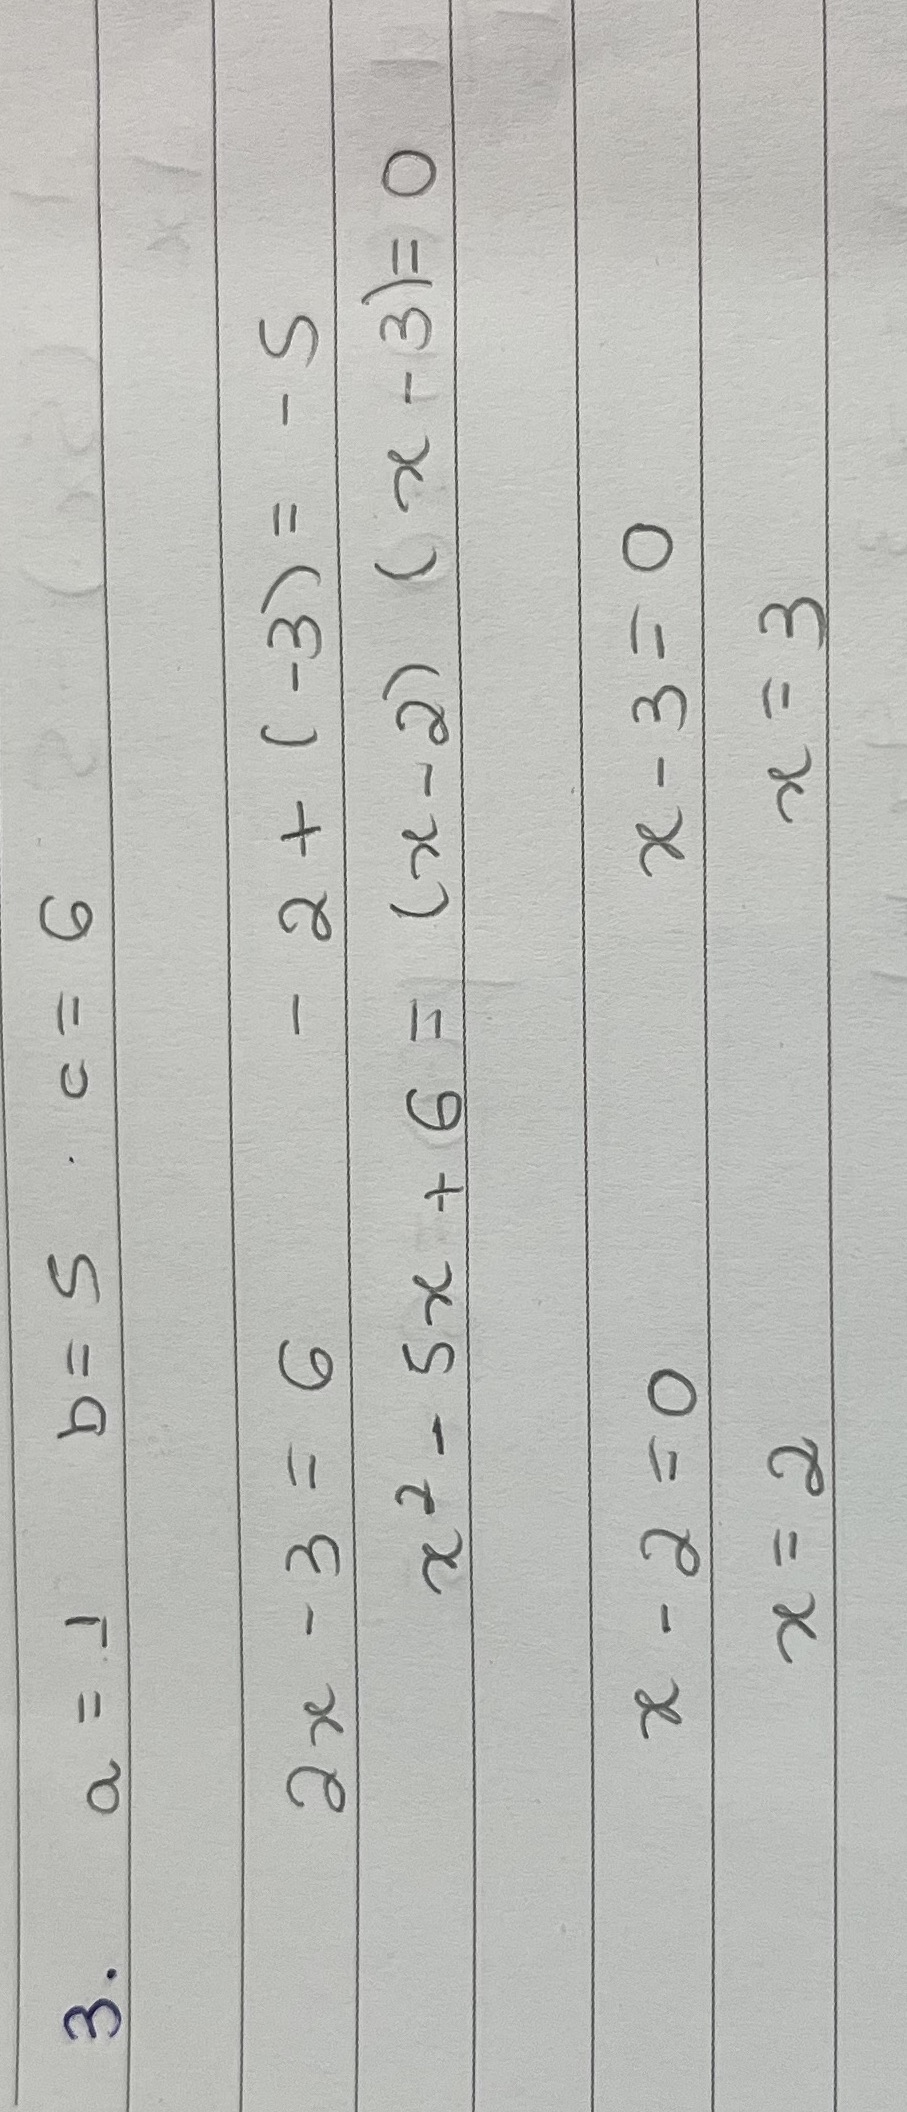 3. a = 1 b = 5 . c = 6
2x - 3 = 6 - 2 + (-3) = - 5
x² - 5x + 6 = (x - 2) (x - 3) = 0
x - 2 = 0 x - 3 = 0
x = 2 x = 3